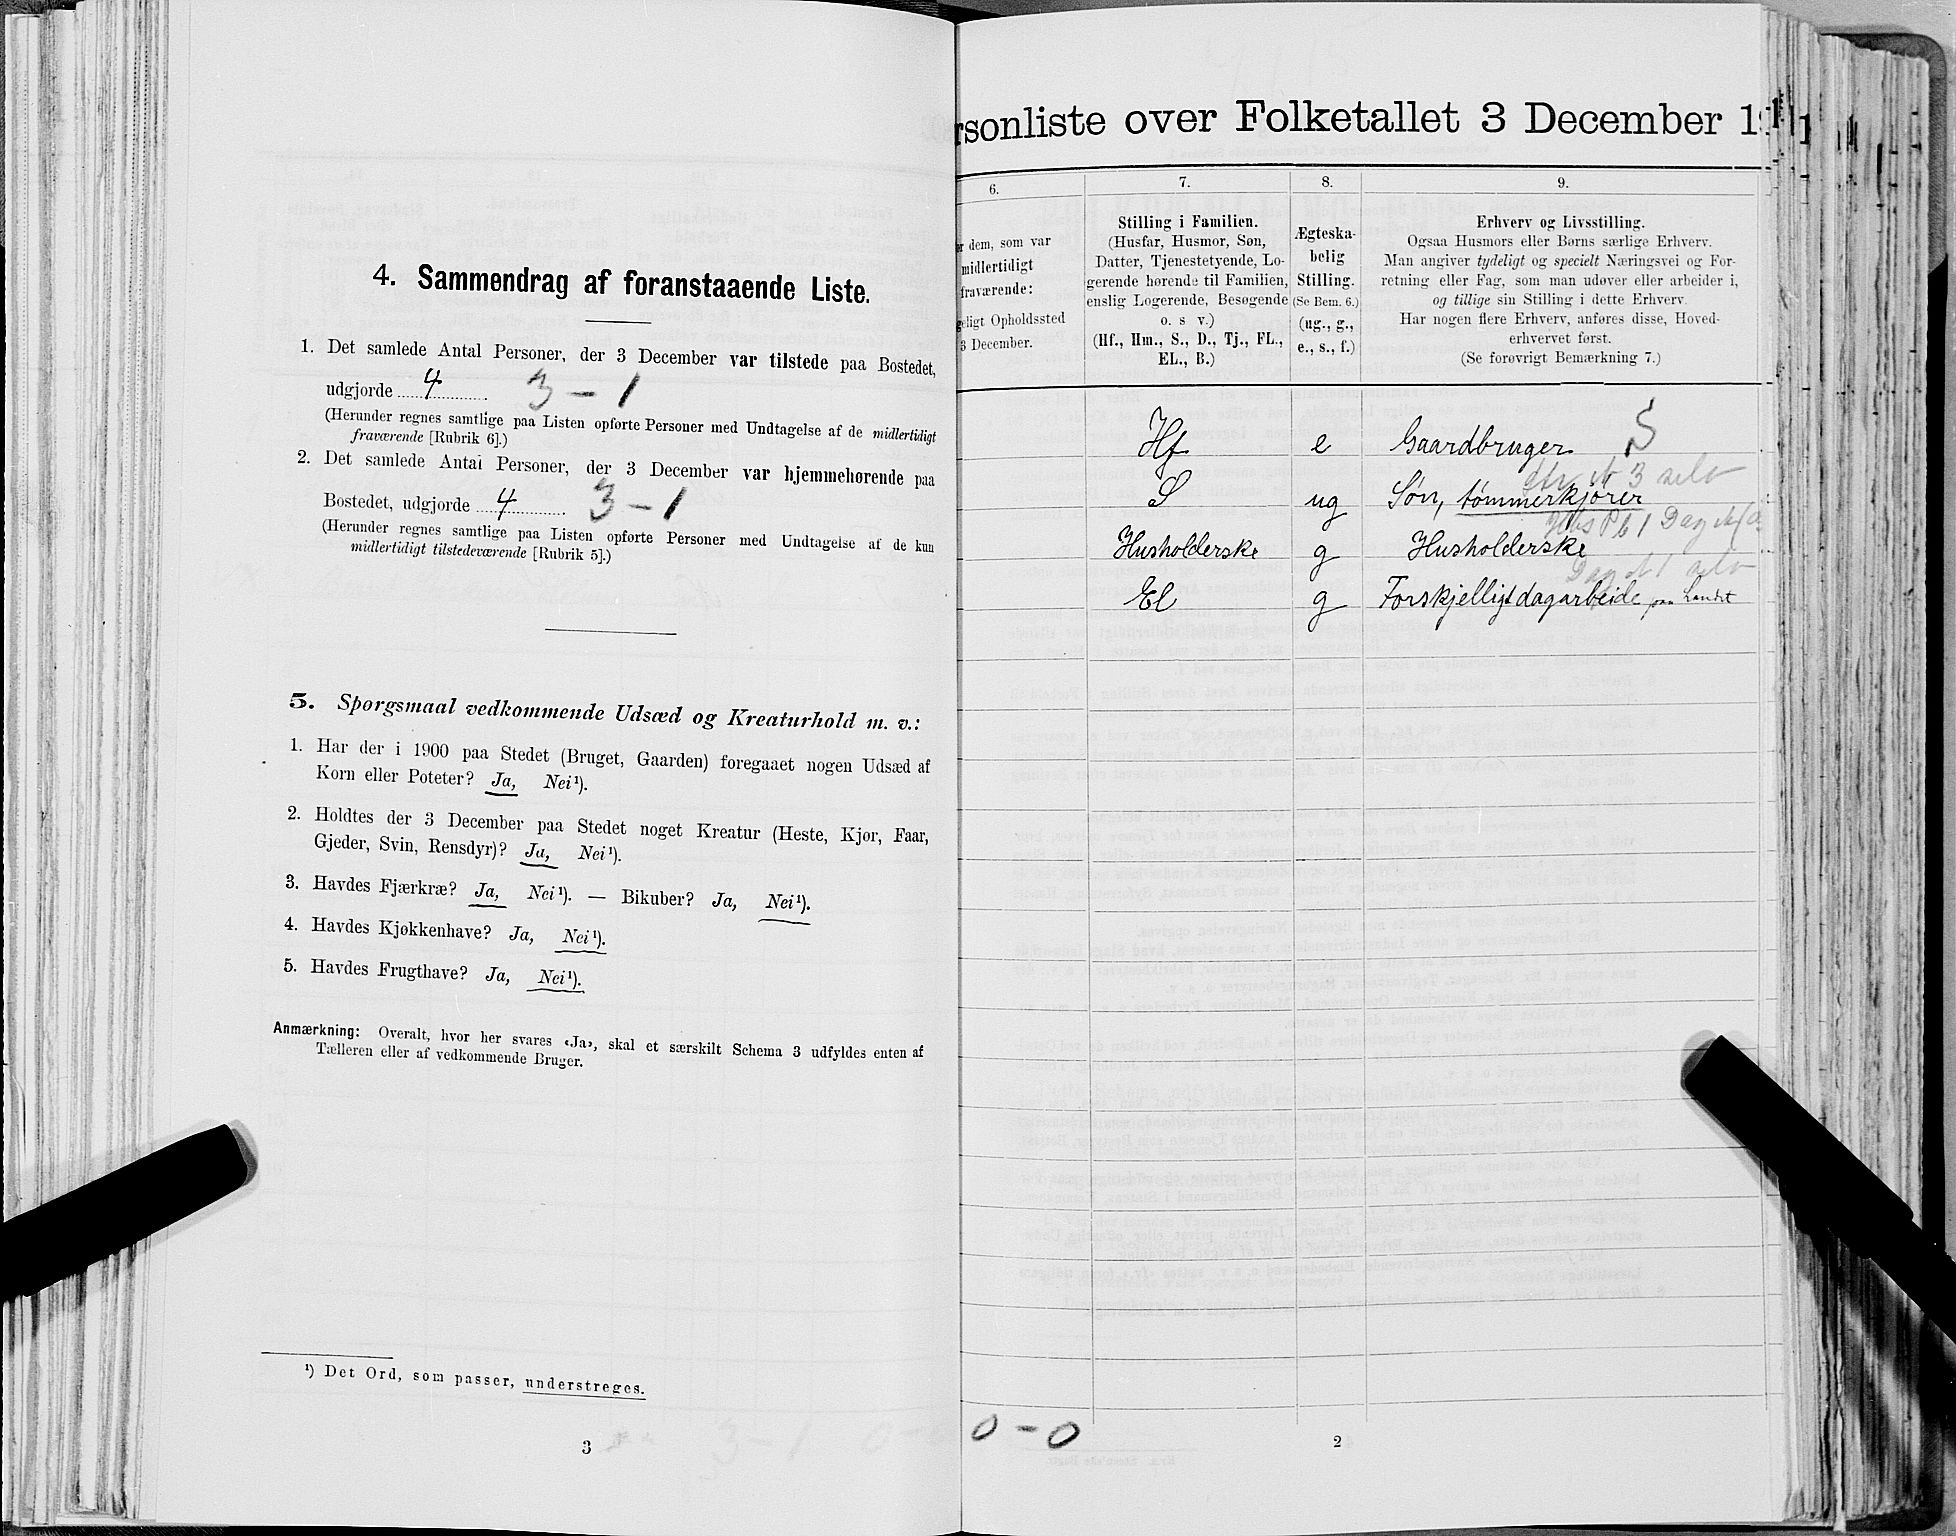 4. Sammendrag af foranstaaende Liste.
1. Det samlede Antal Personer, der 3 December var tilstede paa Bostedet,
udgjorde 4 3 – 1
(Herunder regnes samtlige paa Listen opførte Personer med Undtagelse af de midlertidigt
fraværende [Rubrik 6].)
2. Det samlede Antal Personer, der 3 December var hjemmehørende paa
Bostedet, udgjorde 4 3 – 1
(Herunder regnes samtlige paa Listen opførte Personer med Undtagelse af de kun
midlertidigt tilstedeværende [Rubrik 5].)
5. Spørgsmaal vedkommende Udsæd og Kreaturhold m. v.:
1. Har der i 1900 paa Stedet (Bruget, Gaarden) foregaaet nogen Udsæd af
Korn eller Poteter? Ja, Nei¹).
2. Holdtes der 3 December paa Stedet noget Kreatur (Heste, Kjør, Faar,
Gjeder, Svin, Rensdyr)? Ja, Nei¹).
3. Havdes Fjærkræ? Ja, Nei¹). — Bikuber? Ja, Nei¹).
4. Havdes Kjøkkenhave? Ja, Nei¹).
5. Havdes Frugthave? Ja, Nei¹).
Anmærkning: Overalt, hvor her svares «Ja», skal et særskilt Schema 3 udfyldes enten af
Tælleren eller af vedkommende Bruger.
¹) Det Ord, som passer, understreges.
3
3 – 1 0 –
rsonliste over Folketallet 3 December 1
6.
dem, som var
midlertidigt
fraværende:
geligt Opholdssted
3 December.
7.
Stilling i Familien.
(Husfar, Husmor, Søn,
Datter, Tjenestetyende, Lo-
gerende hørende til Familien,
enslig Logerende, Besøgende
o. s v.)
(Hf., Hm., S., D., Tj., FL.,
EL., B.)
8.
Ægteska-
belig
Stilling.
(Se Bem. 6.)
(ug., g.,
e., s., f.)
9.
Erhverv og Livsstilling.
Ogsaa Husmors eller Børns særlige Erhverv.
Man angiver tydeligt og specielt Næringsvei og For-
retning eller Fag, som man udøver eller arbeider i,
og tillige sin Stilling i dette Erhverv.
Har nogen flere Erhverv, anføres disse, Hoved-
erhvervet først.
(Se forøvrigt Bemærkning 7.)
Hf e Gaardbruger S
3 selv
S ug Søn, tømmerkjører
1 Dag
Husholderske g Husholderske
Dag 1 selv
El g Forskjelligt dagarbeide paa Landet
0 – 0
2